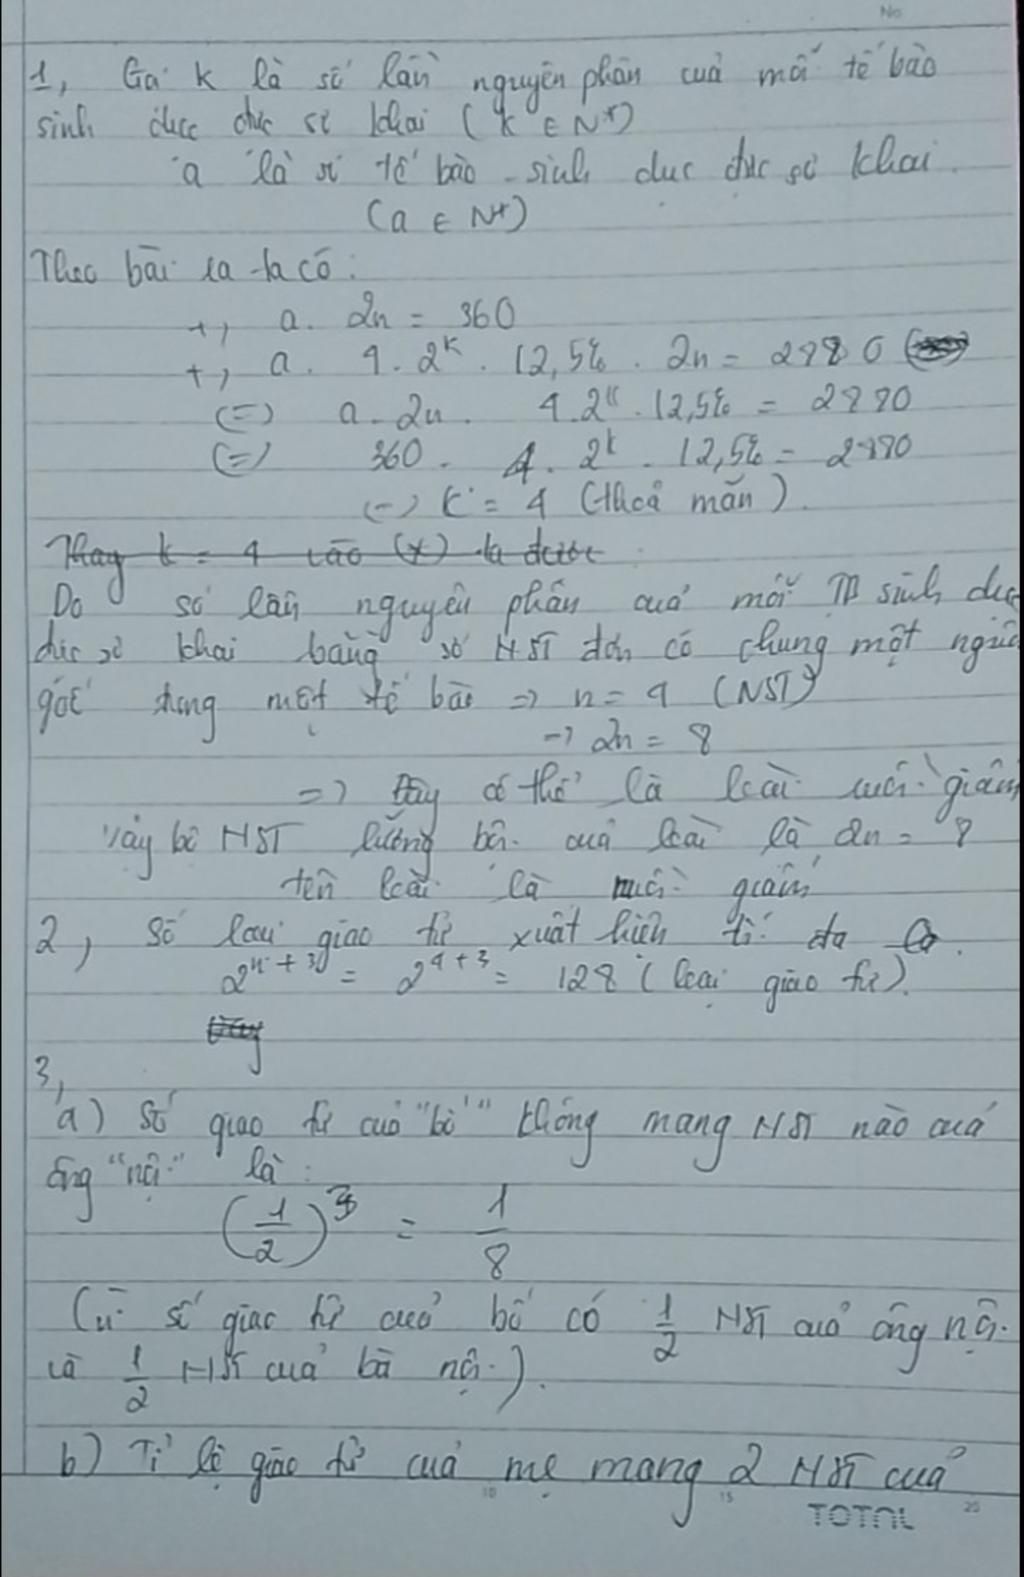 No
1, Gọi k là số lần nguyên phân của mỗi tế bào
sinh dục đực sơ khai ( k ∈ N*)
a là số tế bào sinh dục đực sơ khai.
(a ∈ N*)
Theo bài ra ta có :
+, a. 2n = 360
+, a. 4. 2^k . 12,5% . 2n = 2880
(=) a. 2n. 4. 2^k . 12,5% = 2880
(=) 360. 4. 2^k . 12,5% = 2880
(=) k = 4 (thoả mãn).
Thay k = 4 vào (*) ta được
Do số lần nguyên phân của mỗi TB sinh dục
đực sơ khai bằng số NST đơn có chung một nguồn
gốc trong một tế bào => n = 4 (NST)
-> 2n = 8
=> Đây có thể là loài ruồi giấm
Vậy bộ NST lưỡng bội của loài là 2n = 8
tên loài là ruồi giấm
2, Số loại giao tử xuất hiện tối đa
2^{n + 3} = 2^{4 + 3} = 128 (loại giao tử).
3,
a) Số giao tử của "bố" không mang NST nào của
ông "nội" là :
(1/2)^3 = 1/8
(Vì số giao tử của bố có 1/2 NST của ông nội
và 1/2 NST của bà nội.).
b) Tỉ lệ giao tử của mẹ mang 2 NST của
10 15 20
TOTAL